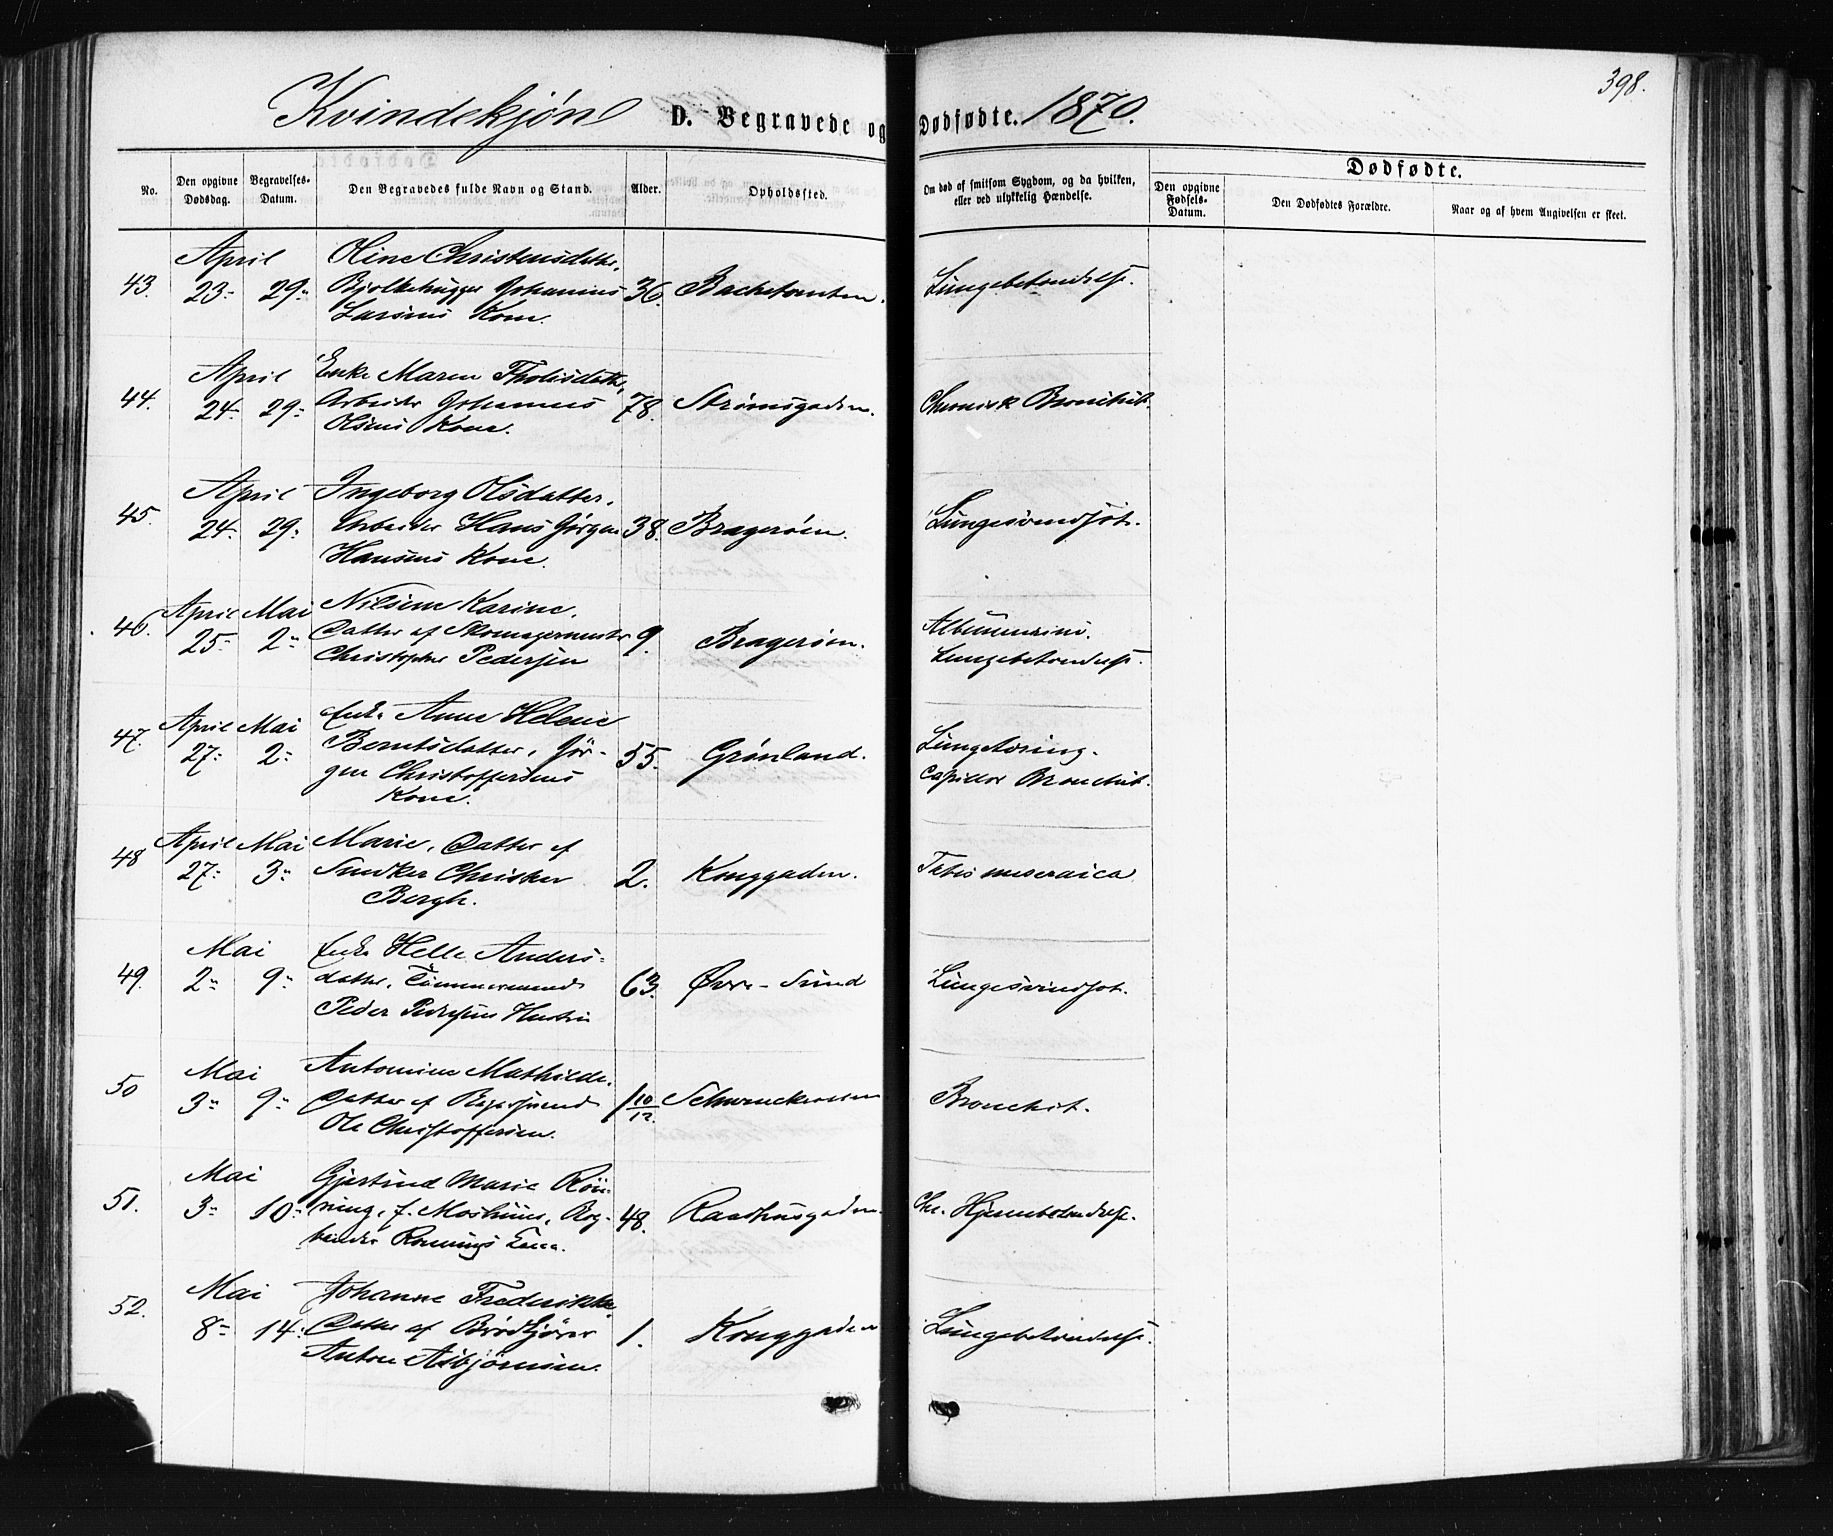 398.
Kvindekjøn D. Begravede og Dødfødte. 1870.
No.
Den opgivne Dødsdag.
Begravelses-Datum.
Den Begravedes fulde Navn og Stand.
Alder.
Opholdssted.
Om død af smitsom Sygdom, og da hvilken, eller ved ulykkelig Hændelse.
Dødfødte.
Den opgivne Fødsels-Datum.
Den Dødfødtes Forældre.
Naar og af hvem Angivelsen er skeet.
April Oline Christensdatter,
43. 23 29 Bjelkehugger Johannes 36. Bachetomten. Lungebetændelse.
Larsens Kone.
April Enke Maren Tholisdatter,
44. 24 29 Arbeider Johannes 78. Strømsgaden. Chronisk Bronchit.
Olsens Kone.
April Ingeborg Olsdatter,
45. 24 29 Arbeider Hans Jørgen 38. Bragerøen. Lungesvindsot.
Hansens Kone.
April Mai Nilsine Karine,
46. 25 2 Datter af Skomagermester 9. Bragerøen. Albuminuri.
Christopher Pedersen Lungebetændelse.
April Mai Enke Anne Helene
47. 27 2 Berntsdatter, Jør- 55. Grønland. Lunge
gen Christoffersens capillær Bronchit.
Kone.
April Mai Marie, Datter af
48 27 3 Snedker Christen 2. Konggaden. Tabes meseraica
Bergh.
Mai Enke Helle Anders-
49. 2 9 datter, Tømmermand 63. Øvre-Sund Lungesvindsot.
Peder Pedersens Hustru
Mai Antonine Mathilde,
50 3 9 Datter af 1 10/12. Schwenckerosen Bronchit.
Ole Christoffersen.
Mai Gjertrud Marie Rön-
51. 3 10 ning, f. Moshuus, Bog- 48. Raadhusgaden. Chr. Hjernebetændelse.
binder Rønnings Enke.
Mai Johanne Frederikke
52. 8 14 Datter af Brødkjører 1. Konggaden Lungebetændelse.
Anton Asbjørnsen.